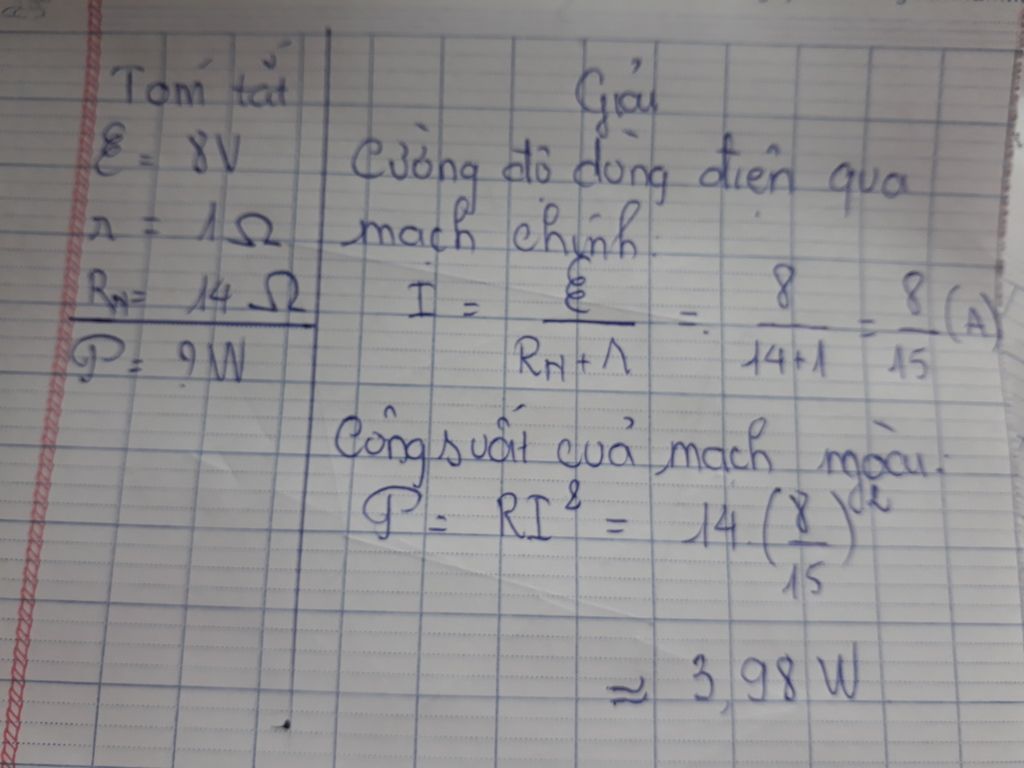 Tóm tắt
ℰ = 8V
r = 1Ω
R_N = 14 Ω
𝒫 = ?W
Giải
Cường độ dòng điện qua
mạch chính
I = ℰ/(R_N + r) = 8/(14+1) = 8/15 (A)
Công suất quả mạch ngoài.
𝒫 = RI² = 14 (8/15)²
≈ 3,98 W